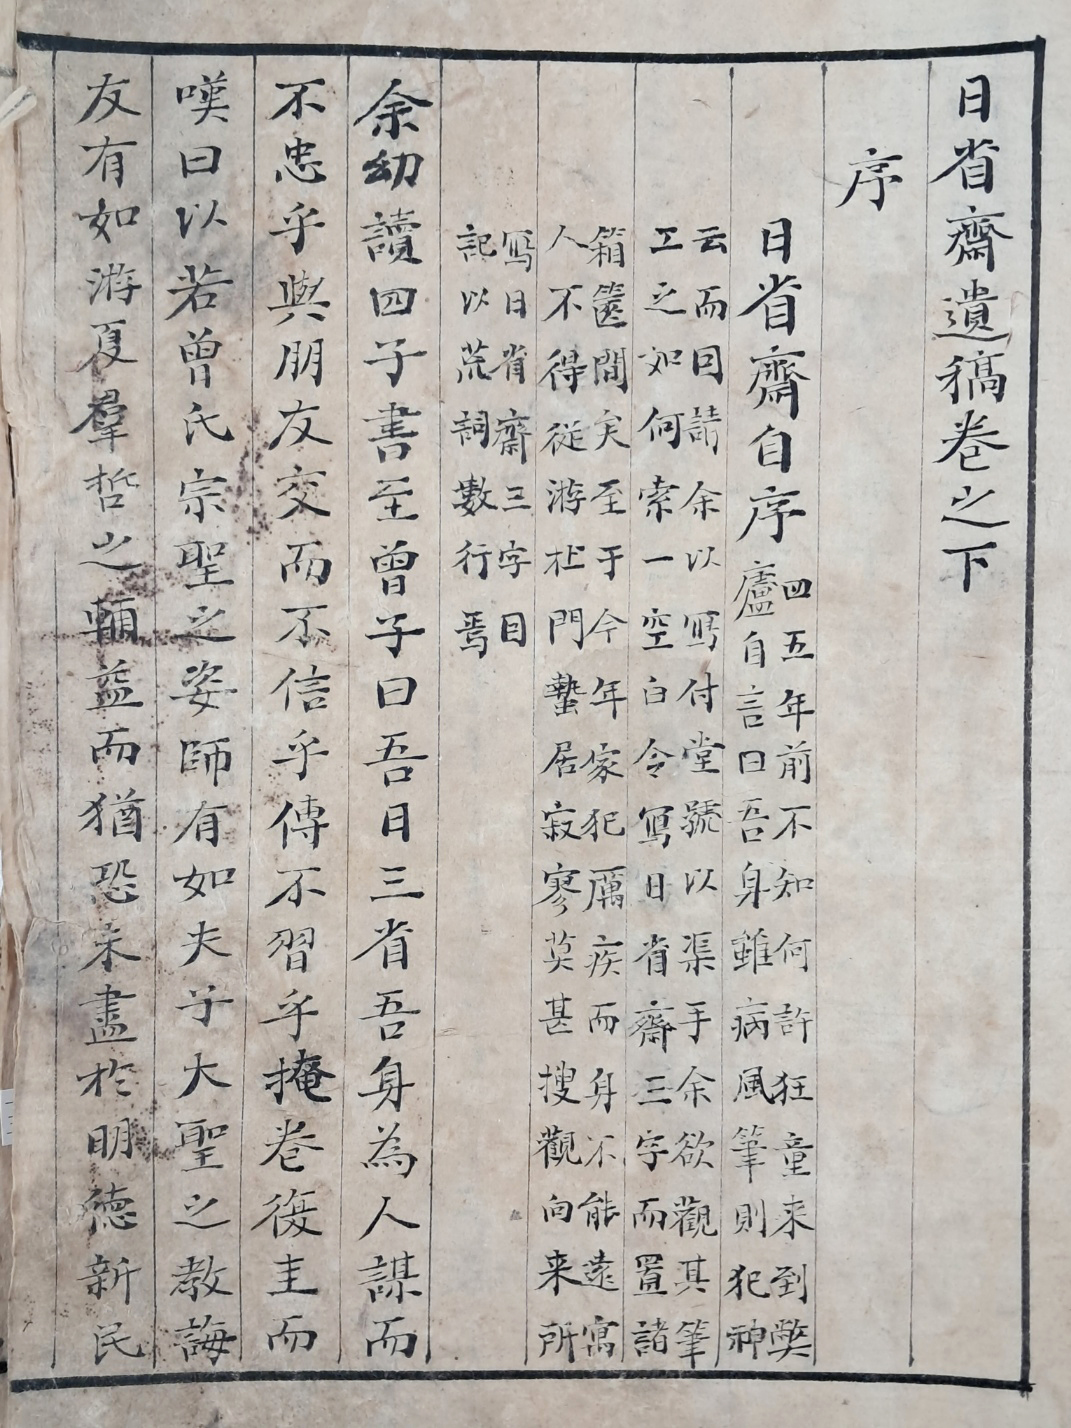 日省齋遺稿卷之下
序
日省齋自序
四五年前不知何許狂童来到獘
廬自言曰吾身雖病風筆則犯神
云而因請余以寫付堂號以渠手余欲觀其筆
工之如何索一空白令寫日省齋三字而置諸
箱篋間矣至于今年家犯厲疾而身不能遠寓
人不得從游杜門蟄居寂寥莫甚搜觀向来所
寫日省齋三字因
記以荒詞數行焉
余幼讀四子書至曾子曰吾日三省吾身為人謀而
不忠乎與朋友交而不信乎傳不習乎掩卷復圭而
嘆曰以若曾氏宗聖之姿師有如夫子大聖之教誨
友有如游夏羣哲之輔益而猶恐未盡於明德新民